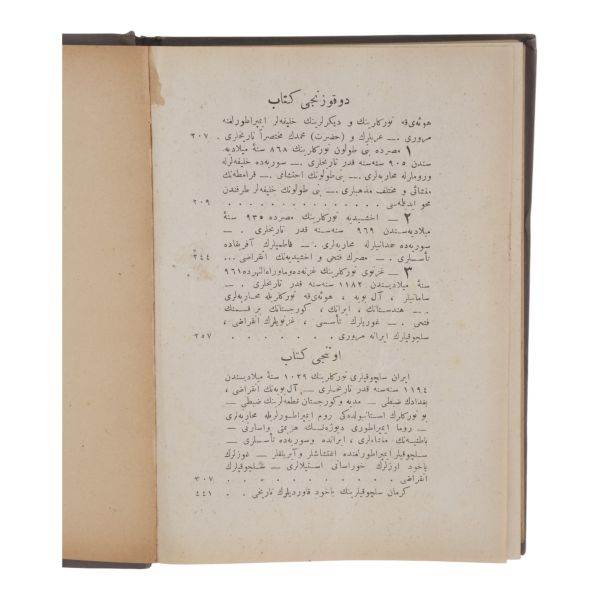 دوقوزنجی کتاب
هوئه‌ی‌قه تورکلرینك و دیکرلرینك خلیفه‌لر ایمپراطورلغنه
مروری .— عربلرك و (حضرت) محمدك مختصراً تاریخلری . ۲۰۷
۱ مصرده بنی طولون تورکلرینك ۸۶۸ سنهٔ میلادیه
سندن ۹۰۵ سنه‌سنه قدر تاریخلری .— سوریه‌ده خلیفه‌لرله
و روملرله محاربه‌لری .— بنی طولونك احتشامی .— قرامطه‌نك
منشائی و مختلف مذهبلری .— بنی طولونك خلیفه‌لر طرفندن
محو ایدلمه‌سی . . . . . . . . . . . . ۲۰۹
۲ — اخشیدیه تورکلرینك مصرده ۹۳۵ سنهٔ
میلادیه‌سندن ۹۶۹ سنه‌سنه قدر تاریخلری .—
سوریه‌ده حمدانیلرله محاربه‌لری .— فاطمیلرك آفریقاده
تأسسلری .— مصرك فتحی و اخشیدیه‌نك انقراضی ... ۲٤٤
۳ — غزنوی تورکلرینك غزنه‌ده و ماوراءالنهرده ۹۶۱
سنهٔ میلادیسندن ۱۱۸۲ سنه‌سنه قدر تاریخلری .—
سامانیلر ، آل بویه ، هوئه‌ی‌قه تورکلریله محاربه‌لری
.— هندستانك ، ایرانك ، کورجستانك بر قسمنك
فتحی .— غوریلرك تأسسی ، غزنویلرك انقراضی ،
سلجوقیلرك ایرانه مروری . . . . . . ۲۵۷
اوننجی کتاب
ایران سلجوقیلری تورکلرینك ۱۰۲۹ سنهٔ میلادیسندن
۱۱۹٤ سنه‌سنه قدر تاریخلری .— آل بویه‌نك انقراضی ،
بغدادك ضبطی .— مدیه و کورجستان قطعه‌لرینك ضبطی .—
بو تورکلرك استانبولده‌کی روم ایمپراطورلریله محاربه‌لری
.— روما ایمپراطوری دیوژه‌نك هزیمتی و اسارتی .—
باطنیه‌نك منشاءلری ، ایرانده و سوریه‌ده تأسسلری .—
سلجوقیلر ایمپراطورلغنده اغتشاشلر و آیریلقلر .— غوزلرك
یاخود اوزلرك خورا‌سانی استیلالری .— سلجوقیلرك
انقراضی . . . . . . . . . . . ۳۰۷
کرمان سلجوقیلرینك یاخود قاوردیلرك تاریخی . . ٤٤۱